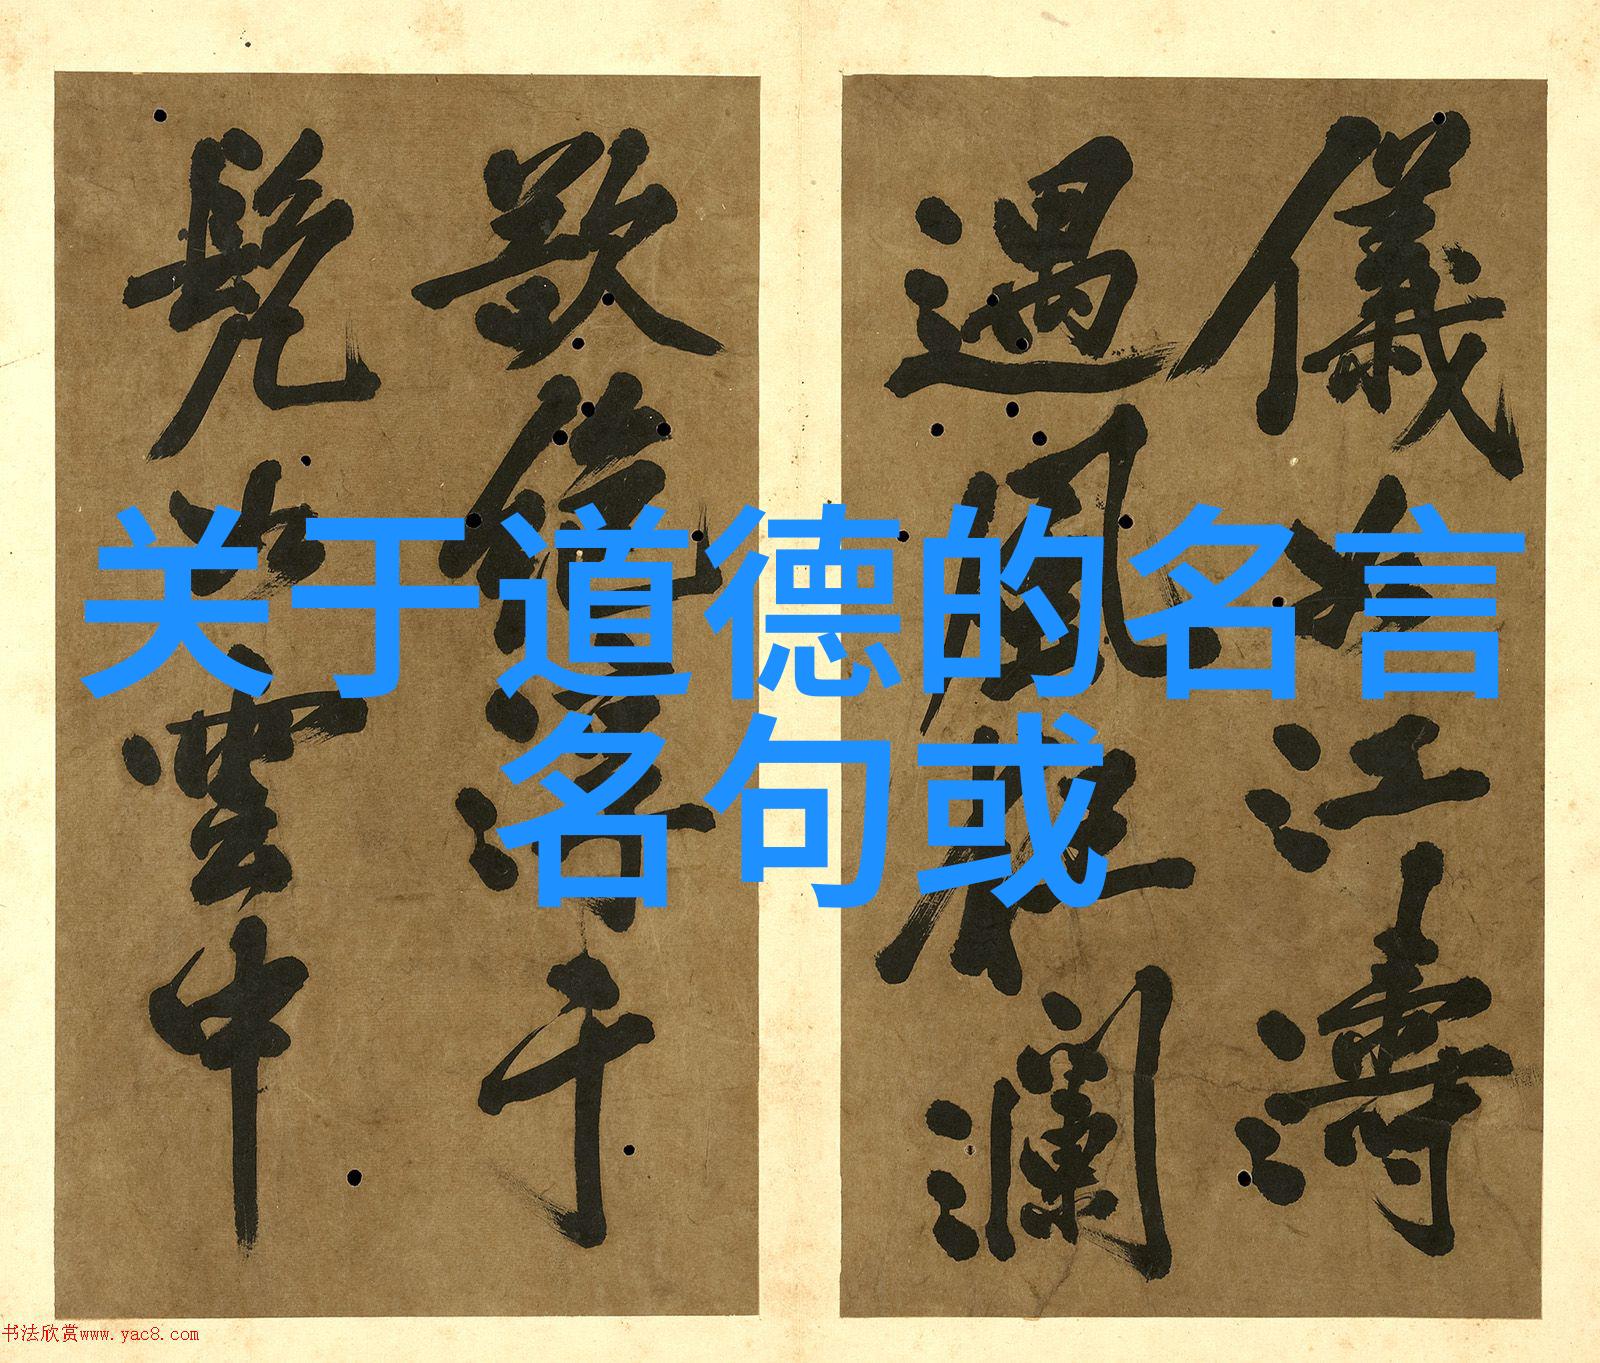 关于道德的名言
名句或
儀如江濤
遇風瀾
于
如雲中
书法欣赏www.yac8.com